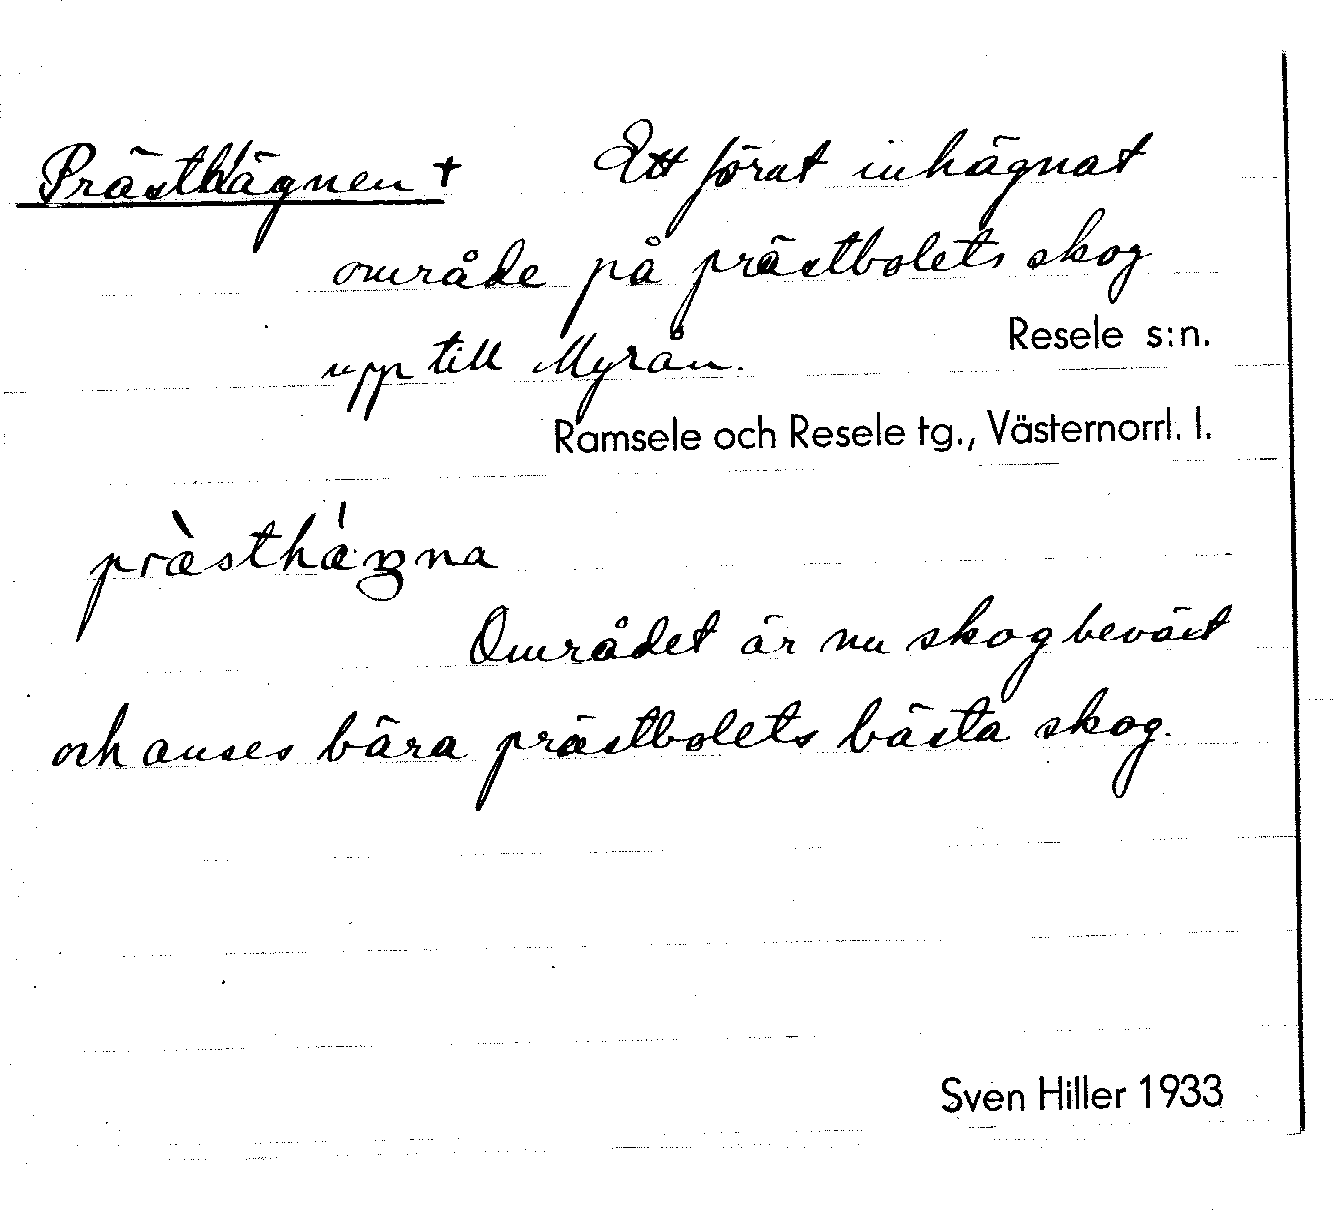 Prästhägnen † Ett förut inhägnat
område på prästbolets skog
Resele s:n.
upp till Myrån.
Ramsele och Resele tg., Västernorrl. l.
prὰsthágna
Området är nu skogbeväxt
och anses bära prästbolets bästa skog.
Sven Hiller 1933